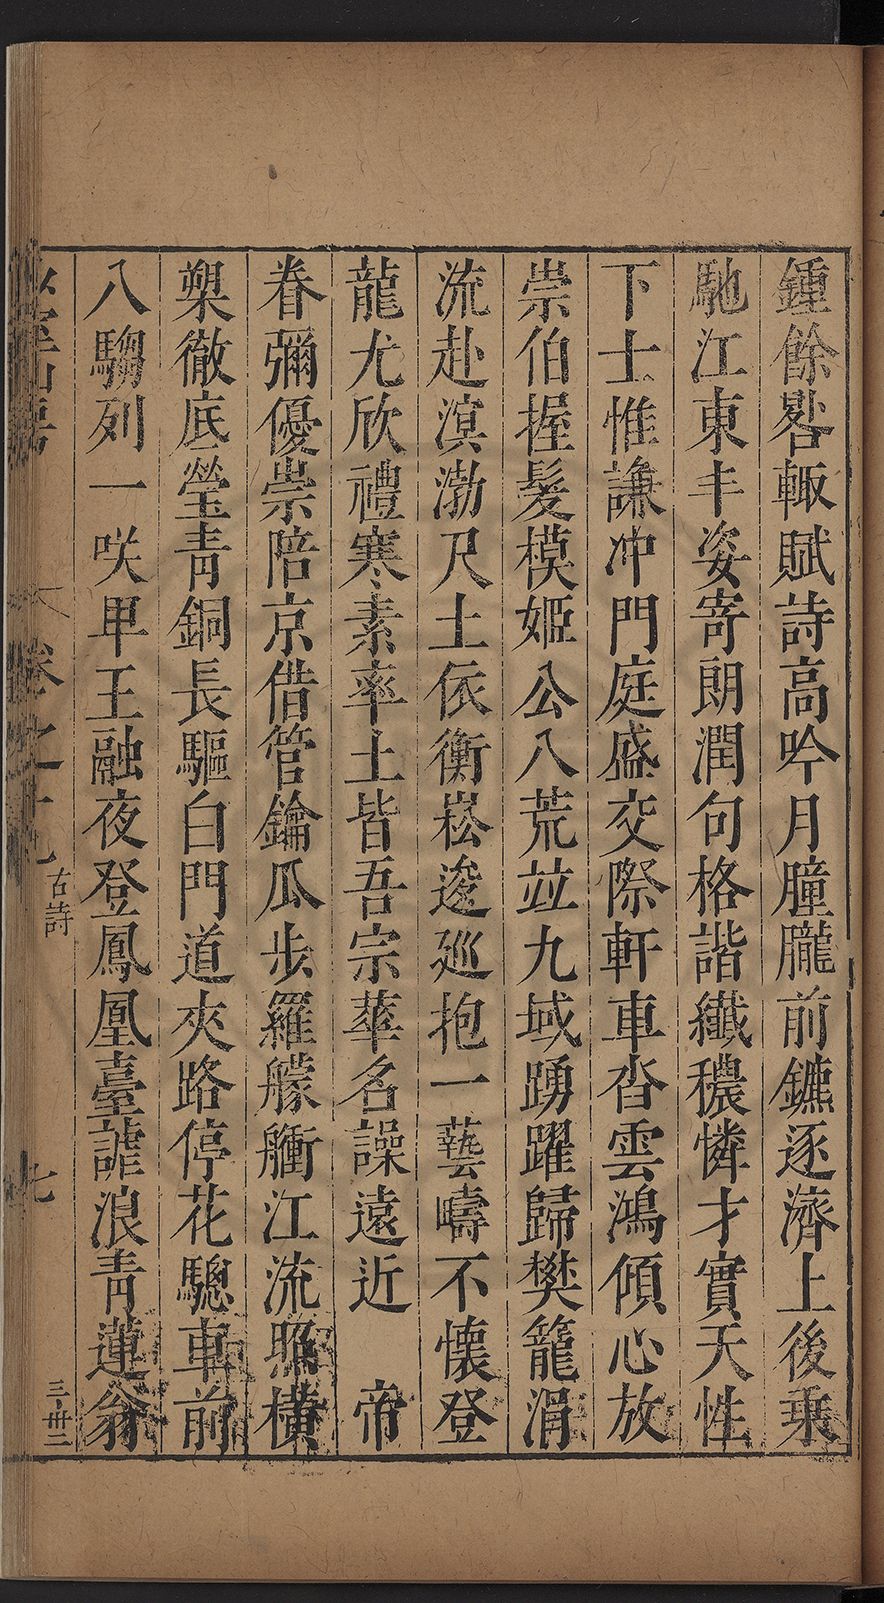 鍾餘㗲輙賦詩高吟月朣朧前鑣逐濟上後乗
馳江東丰姿寄朗潤句格諧纖穠憐才實天性
下士惟謙冲門庭盛交際軒車沓雲鴻傾心放
崇伯握髮模姬公八荒竝九域踴躍歸樊籠涓
流赴溟渤尺土依衡崧逡廵抱一藝疇不懷登
龍尤欣禮寒素率土皆吾宗華名譟遠近　帝
眷彌優崇陪京借管鑰瓜步羅艨艟江流照橫
槊徹底瑩青銅長驅白門道夾路停花驄車前
八騶列一咲卑王融夜登鳳凰臺謔浪青蓮翁
卷之十九
古詩
七
三卅二